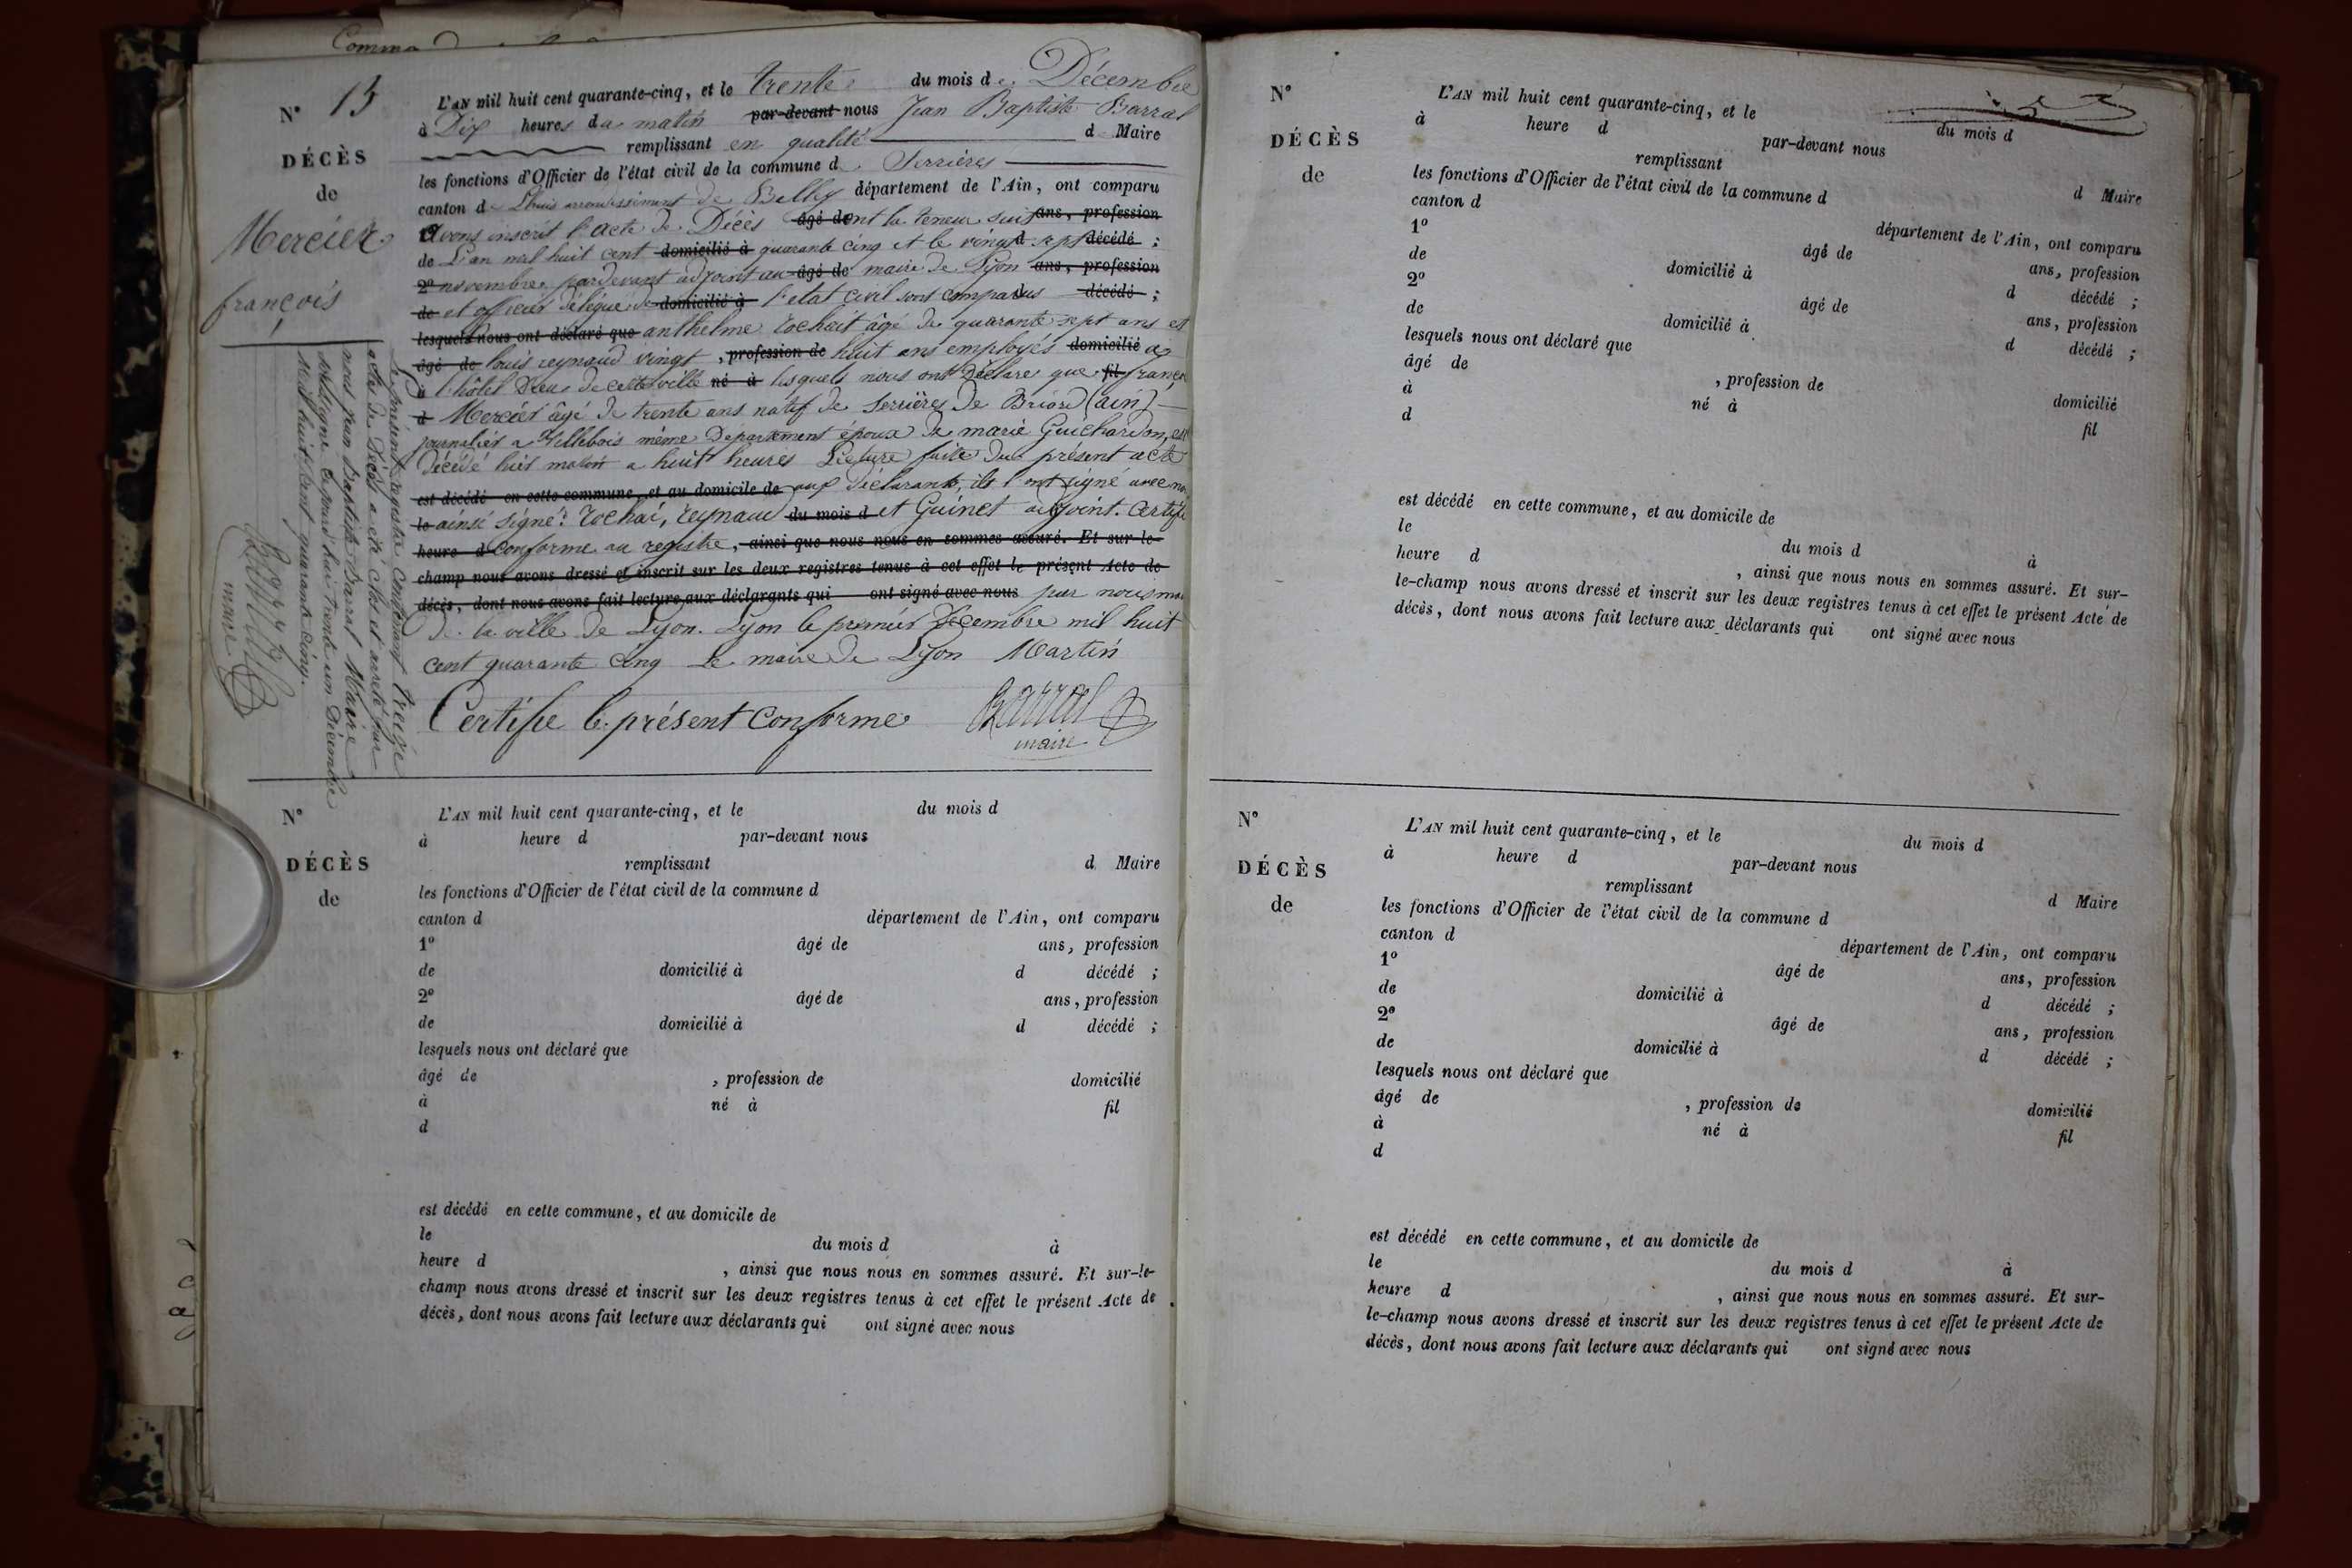 N° 13
DÉCÈS
de
Mercier
françois
L'AN mil huit cent quarante-cinq, et le trente du mois de Décembre
à Dix heures du matin par-devant nous Jean Baptiste Barral
remplissant en qualité d Maire
les fonctions d'Officier de l'état civil de la commune de Serrières
canton de Lhuis arrondissement de Belley département de l'Ain, ont comparu
1° avons inscrit l'acte de Décès âgé dont la teneur suit ans, profession
de L'an mil huit cent domicilié à quarante cinq et le vingt sept d décédé ;
2° novembre pardevant adjoint au âgé de maire de Lyon ans, profession
de et officier délégué de domicilié à l'état civil sont comparus d décédé ;
lesquels nous ont déclaré que anthelme Rochait âgé de quarante sept ans et
âgé de louis reynaud vingt , profession de huit ans employés domicilié a
à l'hôtel Dieu de cette ville né à lesquels nous ont déclaré que fil françois
d Mercier âgé de trente ans natif de Serrières de Briord (ain)
journalier a Villebois même Département époux de marie Guichardon, est
Décédé hier matin a huit heures Lecture faite du présent acte
est décédé en cette commune, et au domicile de aux déclarants, ils l'ont signé avec nous
le ainsi signé : Rochai, Reynaud du mois d et Guinet adjoint. Certifié
heure d conforme au registre, ainsi que nous nous en sommes assuré. Et sur-le-
champ nous avons dressé et inscrit sur les deux registres tenus à cet effet le présent Acte de
décès, dont nous avons fait lecture aux déclarants qui ont signé avec nous par nous maire
de la ville de Lyon. Lyon le premier Décembre mil huit
cent quarante cinq Le maire de Lyon Martin
Certifié le présent conforme
Barral
maire
Le présent registre contenant treize
actes de Décès a été clos et arreté par
nous jean Baptiste Barral Maire
soussigné ce jourd'hui trente un Décembre
mil huit cent quarante cinq.
Barral
maire
N°
DÉCÈS
de
L'AN mil huit cent quarante-cinq, et le du mois d
à heure d par-devant nous
remplissant d Maire
les fonctions d'Officier de l'état civil de la commune d
canton d département de l'Ain, ont comparu
1° âgé de ans, profession
de domicilié à d décédé ;
2° âgé de ans, profession
de domicilié à d décédé ;
lesquels nous ont déclaré que
âgé de , profession de domicilié
à né à fil
d
est décédé en cette commune, et au domicile de
le du mois d à
heure d , ainsi que nous nous en sommes assuré. Et sur-le-
champ nous avons dressé et inscrit sur les deux registres tenus à cet effet le présent Acte de
décès, dont nous avons fait lecture aux déclarants qui ont signé avec nous
N°
DÉCÈS
de
L'AN mil huit cent quarante-cinq, et le du mois d
à heure d par-devant nous
remplissant d Maire
les fonctions d'Officier de l'état civil de la commune d
canton d département de l'Ain, ont comparu
1° âgé de ans, profession
de domicilié à d décédé ;
2° âgé de ans, profession
de domicilié à d décédé ;
lesquels nous ont déclaré que
âgé de , profession de domicilié
à né à fil
d
est décédé en cette commune, et au domicile de
le du mois d à
heure d , ainsi que nous nous en sommes assuré. Et sur-
le-champ nous avons dressé et inscrit sur les deux registres tenus à cet effet le présent Acte de
décès, dont nous avons fait lecture aux déclarants qui ont signé avec nous
N°
DÉCÈS
de
L'AN mil huit cent quarante-cinq, et le du mois d
à heure d par-devant nous
remplissant d Maire
les fonctions d'Officier de l'état civil de la commune d
canton d département de l'Ain, ont comparu
1° âgé de ans, profession
de domicilié à d décédé ;
2° âgé de ans, profession
de domicilié à d décédé ;
lesquels nous ont déclaré que
âgé de , profession de domicilié
à né à fil
d
est décédé en cette commune, et au domicile de
le du mois d à
heure d , ainsi que nous nous en sommes assuré. Et sur-
le-champ nous avons dressé et inscrit sur les deux registres tenus à cet effet le présent Acte de
décès, dont nous avons fait lecture aux déclarants qui ont signé avec nous